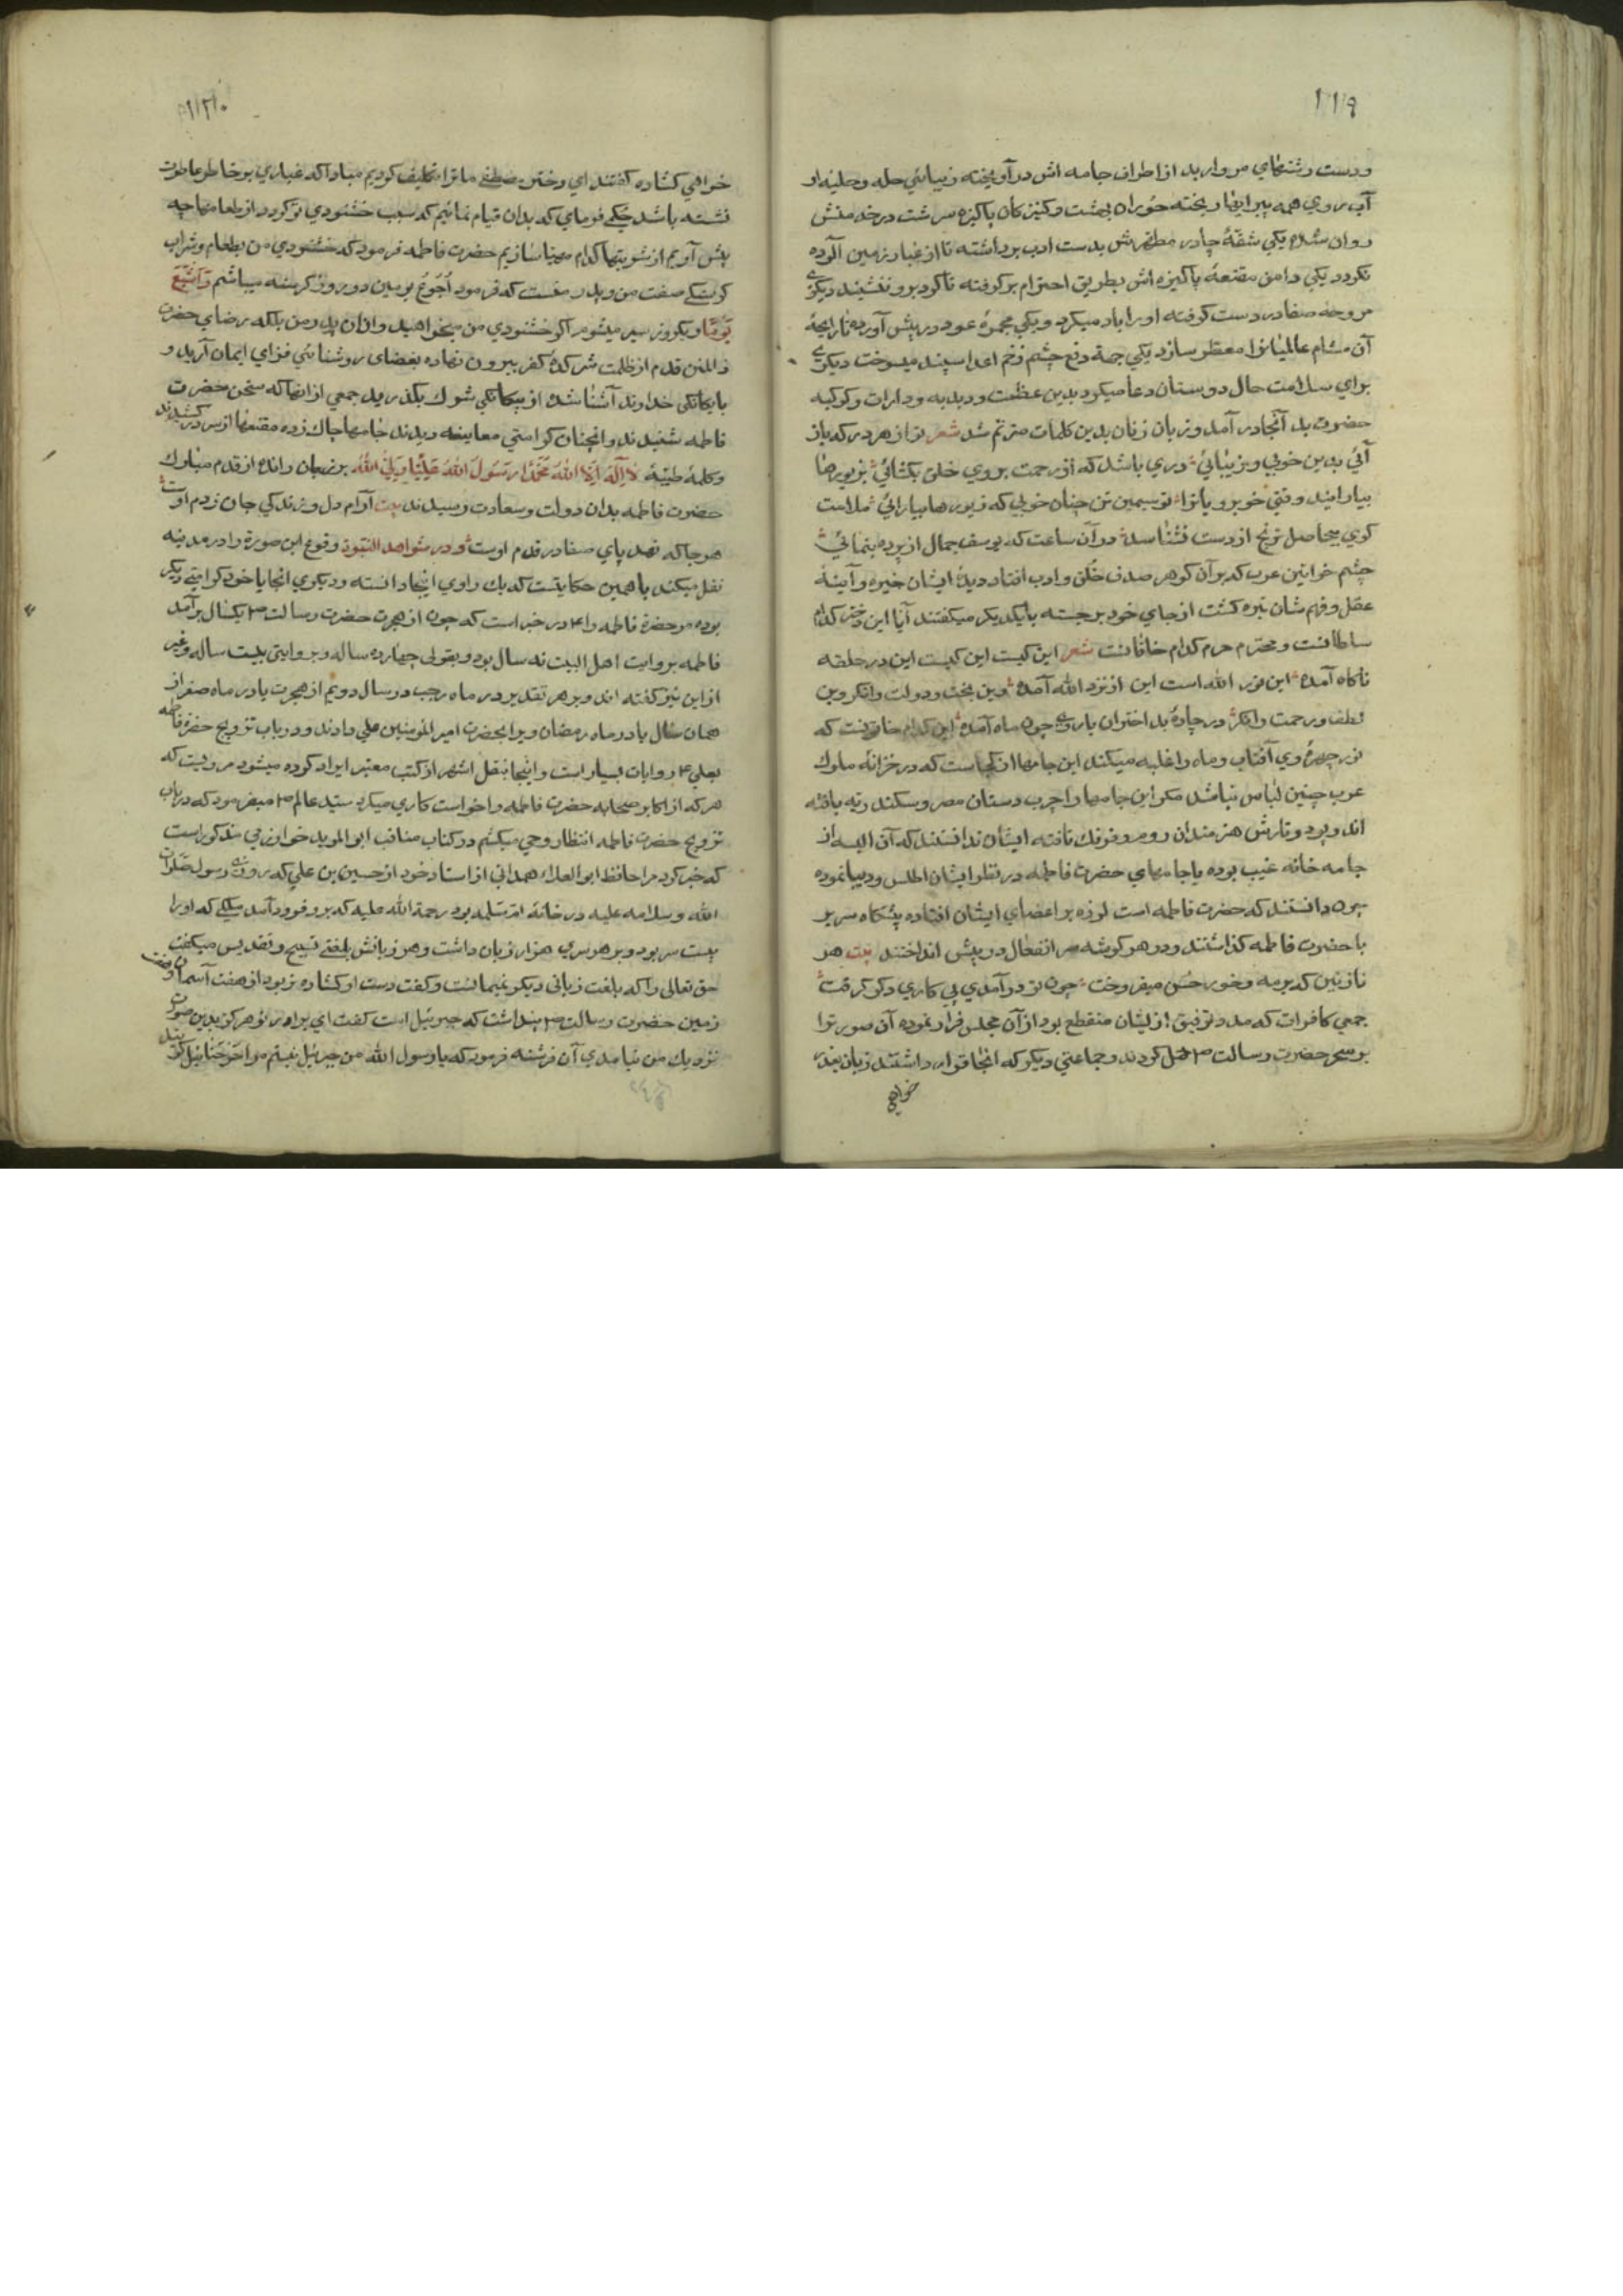 ۱۱۹
ودست رشتهای مروارید از اطراف جامه اش در آویخته زیبائی حله وحلیه او
آب روی همه پیرایها ریخته حوران بهشت وکنیزکان پاکیزه سرشت در خدمتش
روان شده یکی شقهٔ چادر مطهرش بدست ادب برداشته تا از غبار زمین آلوده
نکردد یکی دامن مقنعهٔ پاکیزه اش بطریق احترام برکرفته تا کرد برو ننشیند دیکری
مروحه صفا در دست کرفته او را باد میکرد ویکی مجمرهٔ عود در پیش آورده تا رایحهٔ
آن مشام عالمیانرا معطر سازد یکی جهة دفع چشم زخم اعدا سپند میسوخت دیکری
برای سلامت حال دوستان دعا میکرد بدین عظمت ودبدبه ودارات وکوکبه
حضرت بد آنجا در آمد وزبان زنان بدین کلمات مترنم شد شعر تو از هر در که باز
آئی بدین خوبی وزیبائی دری باشد که از رحمت بروی خلق بکشائی بزیورها
بیارایند وقتی خوبرویانرا تو سیمین تن چنان خوبی که زیورها بیارائی ملامت
کوی بیحاصل ترنج از دست نشناسد در آن ساعت که یوسف جمال از پرده بنمائی
چشم خواتین عرب که بر آن کوهر صدف خلق وادب افتاد دیدهٔ ایشان خیره وآینهٔ
عقل وفهم شان تیره کشت از جای خود برجسته بایکدیکر میکفتند آیا این دختر کدام
سلطانست ومحترم حرم کدام خاقانست شعر این کیست این کیست این در حلقه
ناکاه آمده این نور الله است این از نزد الله آمده وین بخت ودولت وانکر وین
لطف ورحمت وانکر در چارهٔ بد اختران باروی چون ماه آمده این کدام خاتونست که
نور چهرهٔ وی آفتاب وماه را غلبه میکند این جامها از کجاست که در خزانهٔ ملوک
عرب چنین لباس نباشد مکر این جامها را چرب دستان مصر وسکندریه بافته
اند وپود وتارش هنرمندان روم وفرنک تافته ایشان ندانستند که آن البسه از
جامه خانه غیب بوده یا جامهای حضرت فاطمه در نظر ایشان اطلس ودیبا نموده
چون دانستند که حضرت فاطمه است لرزه بر اعضای ایشان افتاده پیشکاه سریر
با حضرت فاطمه کذاشتند ودر هر کوشه سر انفعال در پیش انداختند بیت هر
نازنین که بر مه وخور حسن میفروخت چون تو در آمدی پی کاری دکر کرفت
جمعی کافرات که مدد توفیق از ایشان منقطع بود از آن مجلس فرار نموده آن صورترا
بسحر حضرت رسالت ص حمل کردند وجماعتی دیکر که آنجا قرار داشتند زبان بعذر
خواهی
۱۲۰
خواهی کشاده کفتند ای دختر مصطفی ما ترا تکلیف کردیم مبادا که غباری بر خاطر عاطرت
نشسته باشد حکمی فرمای که بدان قیام نمائیم که سبب خشنودی تو کردد از طعامها چه
پیش آوریم از شربتها کدام مهیا سازیم حضرت فاطمه فرمود که خشنودی من بطعام وشراب
کرسنکی صفت من وپدر منست که فرمود اجوع یومین دو روز کرسنه میباشم واشبع
یوما ویکروز سیر میشوم اکر خشنودی من میخواهید وازان پدر من بلکه رضای حضرت
ذالمنن قدم از ظلمت شرکدهٔ کفر بیرون نهاده بفضای روشنائی فزای ایمان آرید و
با یکانکی خداوند آشنا شده از بیکانکی شرک بکذرید جمعی از آنها که سخن حضرت
فاطمه شنیدند وآنچنان کرامتی معاینه دیدند جامها چاک زده مقنعها از سر در کشیدند
وکلمهٔ طیبهٔ لا اله الا الله محمدا رسول الله علیا ولی الله بر زبان رانده از قدم مبارک
حضرت فاطمه بدان دولت وسعادت رسیدند بیت آرام دل وزندکی جان ز دم اوست
هر جا که نهد پای صفا در قدم اوست ودر شواهد النبوة وقوع این صورة را در مدینه
نقل میکند یا همین حکایتست که یک راوی اینجا دانسته ودیکری آنجا یا خود کرامتی دیکر
بوده مر حضرة فاطمه را ع در خبر است که چون از هجرت حضرت رسالت ص یکسال بر آمد
فاطمه بروایت اهل البیت نه سال بود وبقولی چهارده ساله وبروایتی بیست ساله وغیر
از این نیز کفته اند وبر هر تقدیر در ماه رجب در سال دویم از هجرت یا در ماه صفر از
همان سال یا در ماه رمضان ویرا بحضرت امیر المؤمنین علی دادند ودر باب تزویج حضرة فاطمه
بعلی ع روایات بسیار است واینجا بنقل اشهر از کتب معتبر ایراد کرده میشود مرویست که
هر که از اکابر صحابه حضرت فاطمه را خواست کاری میکرد سید عالم ص میفرمود که در باب
تزویج حضرت فاطمه انتظار وحی میکشم در کتاب مناقب ابو الموید خوارزمی مذکور است
که خبر کرد مرا حافظ ابو العلاء همدانی از استاد خود از حسین بن علی که روزی رسول صلوات
الله وسلامه علیه در خانهٔ ام سلمه بود رحمة الله علیه که برو فرود آمد ملکی که او را
بیست سر بود وبر هر سری هزار زبان داشت وهر زبانش بلغتی تسبیح وتقدیس میکفت
حق تعالی را که بلغت زبانی دیکر نمیمانست وکفت دست او کشاده تر بود از هفت آسمان وهفت
زمین حضرت رسالت ص پنداشت که جبرئیل است کفت ای برادر تو هرکز بدین صورت
نزدیک من نیامدی آن فرشته فرمود که یا رسول الله من جبرئیل نیستم مرا صرصائیل کویند